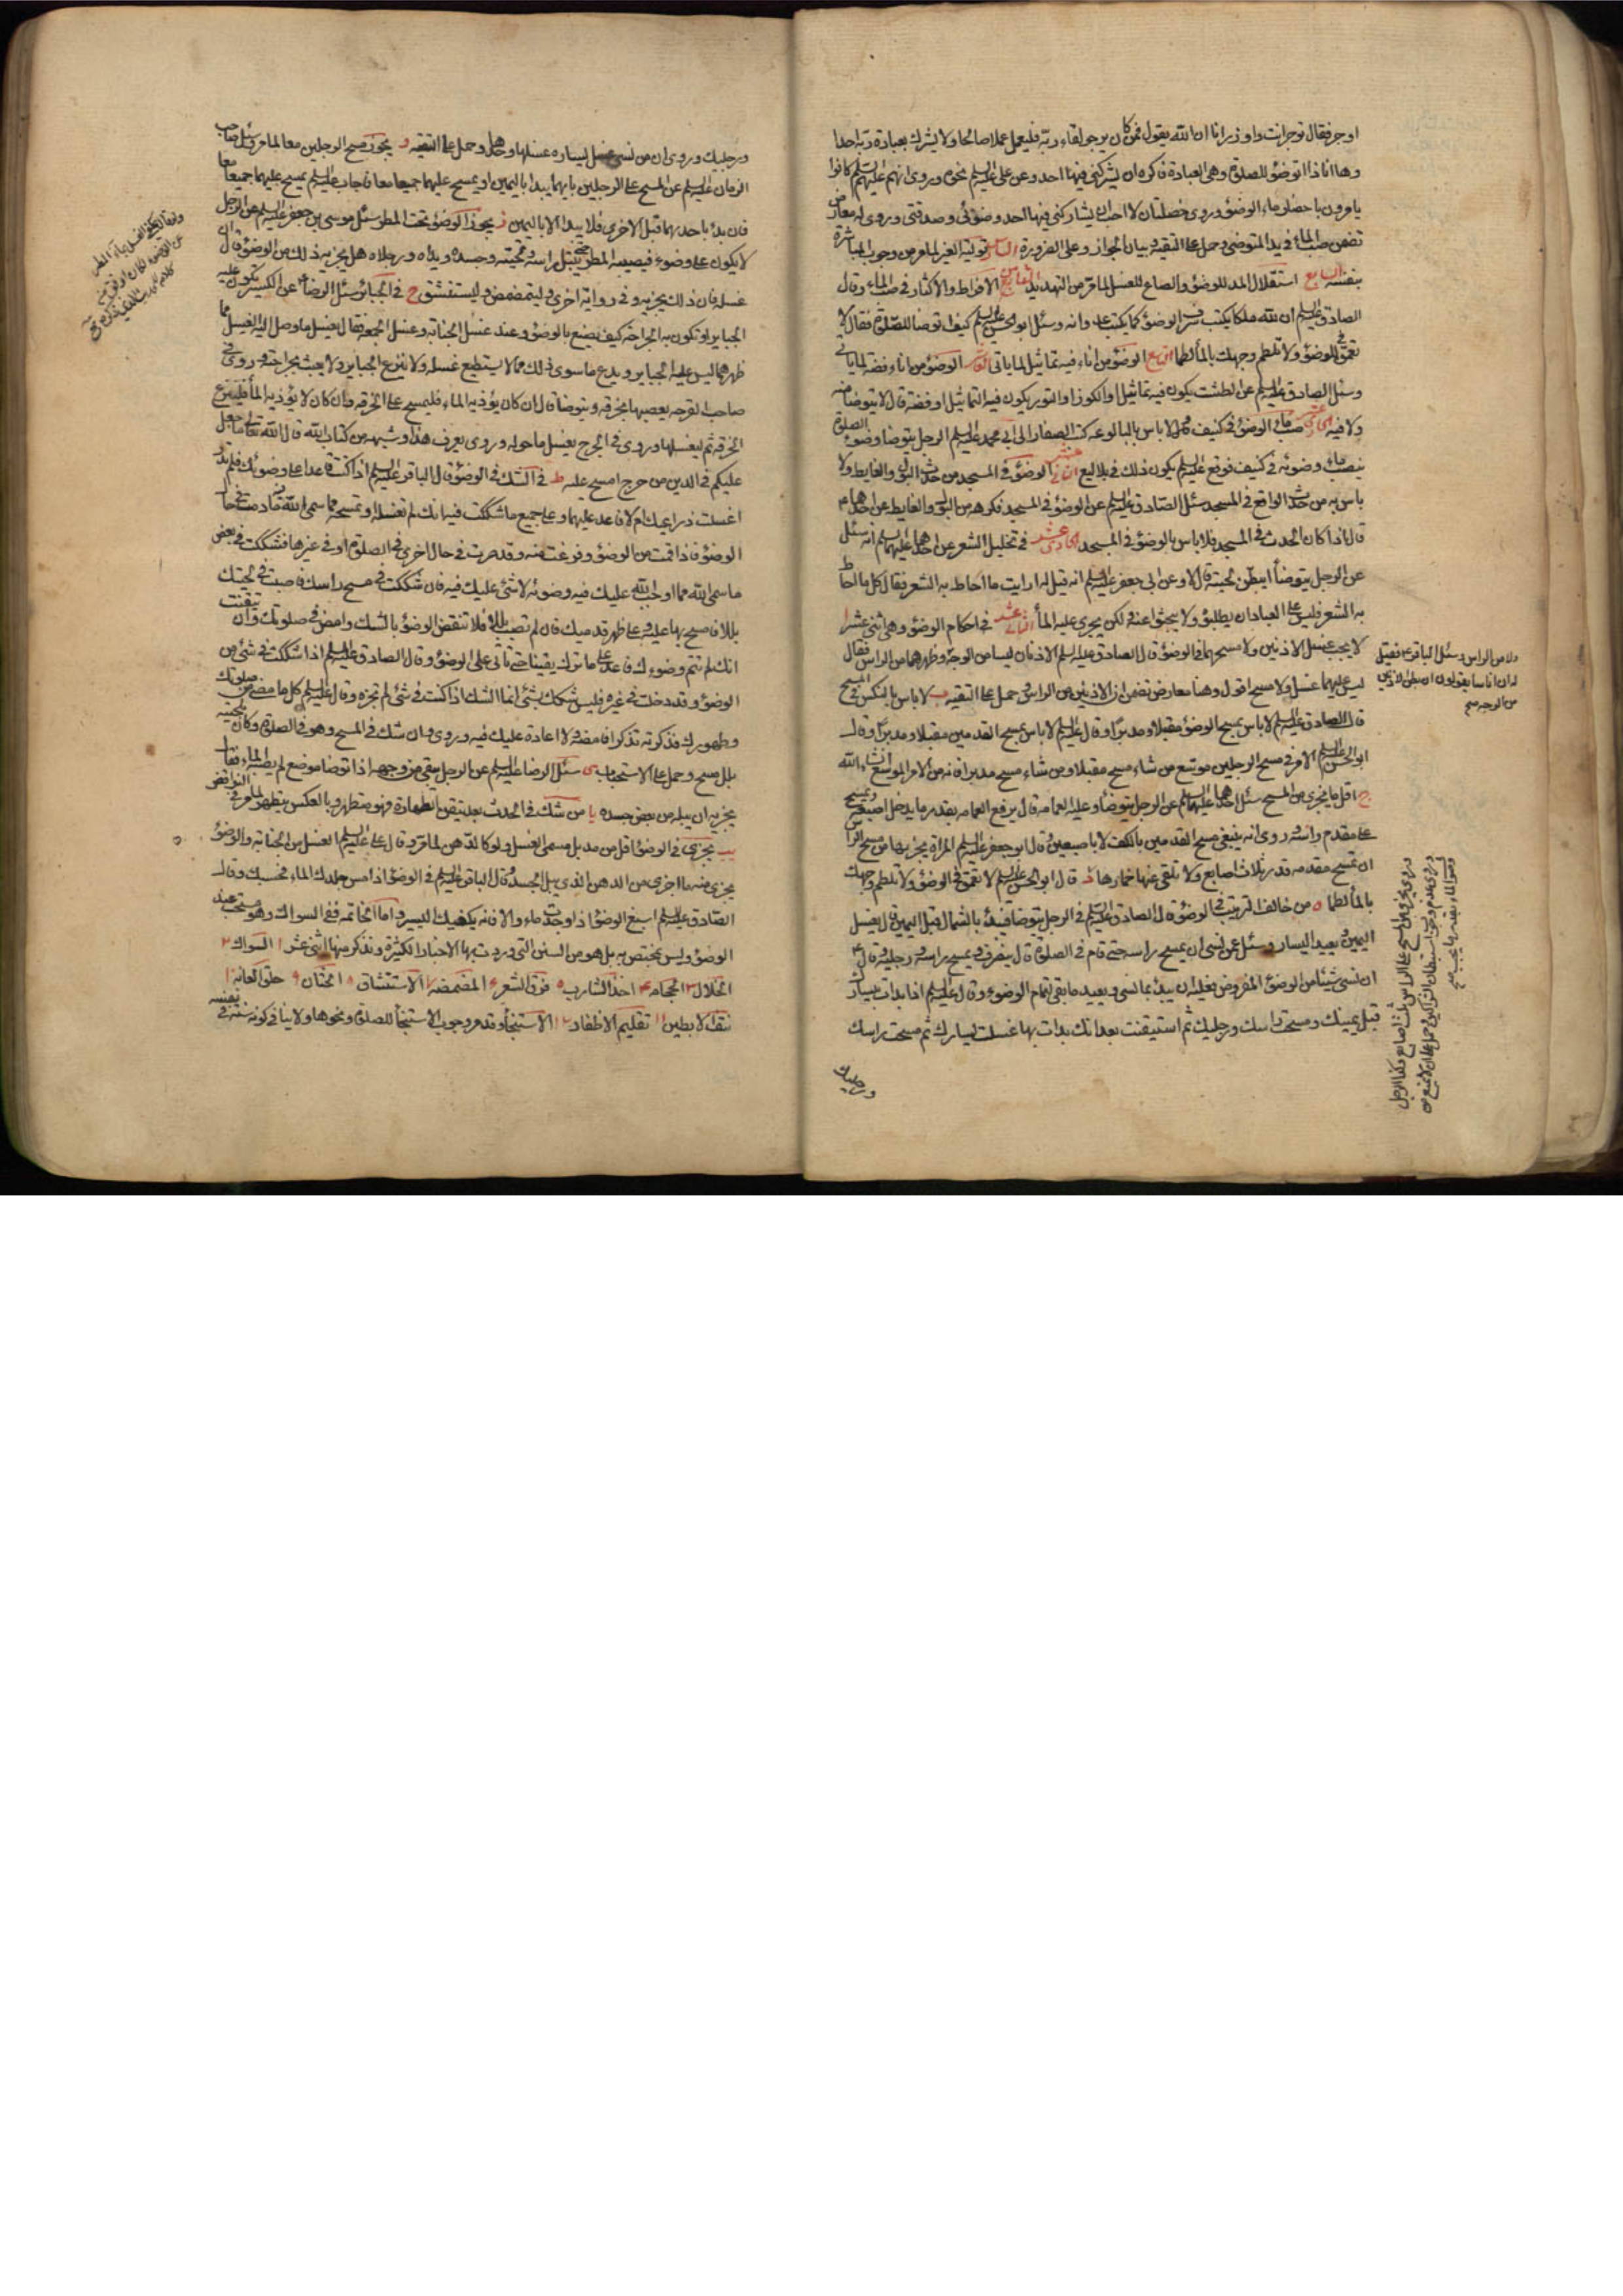 اوجر فقال توجر انت واوزر انا ان الله يقول فمن كان يرجو لقاء ربه فليعمل عملا صالحا ولا يشرك بعبادة ربه احدا
وها انا ذا اتوضؤ للصلوة وهي العبادة فاكره ان يشركني فيها احد وعن علي عليه السلم نحوه وروى انهم عليهم السلم كانوا
يامرون باحضار ماء الوضوء وروى خصلتان لا احب ان يشاركني فيهما احد وضوئى وصدقتى وروى له معارض
تضمن صب الماء في يد المتوضى وحمل على التقيه وبيان الجواز وعلى الضرورة السادس تولية الغير لما مر من وجوب المباشرة
بنفسه السابع استقلال المد للوضوء والصاع للغسل لما مر من التهديد الثامن الافراط والاكثار في صب الماء وقال
الصادق عليه السلم ان لله ملكا يكتب سرف الوضوء كما يكتب عدوانه وسئل ابو الحسن عليه السلم كيف اتوضا للصلوة فقال لا
تعمق في الوضوء ولا تلطم وجهك بالماء لطما التاسع الوضوء من اناء فيه تماثيل لما ياتى العاشر الوضوء من اناء فضه لما ياتى
وسئل الصادق عليه السلم عن الطشت يكون فيه تماثيل او الكوز او التور يكون فيه التماثيل او فضة قال لا يتوضا منه
ولا فيه الحادى عشر صب ماء الوضوء في كنيف ولا باس بالبالوعه كتب الصفار الى ابي محمد عليه السلم الرجل يتوضا وضوء الصلوة
ينصب ماء وضوئه في كنيف فوقع عليه السلم يكون ذلك في بلاليع الثاني عشر الوضوء في المسجد من حدث البول والغايط ولا
باس به من حدث الواقع في المسجد سئل الصادق عليه السلم عن الوضوء في المسجد فكرهه من البول والغايط وعن احدهما ع
قال اذا كان الحدث في المسجد فلا باس بالوضوء في المسجد الحادى عشر في تخليل الشعر عن احدهما عليهما السلم انه سئل
عن الرجل يتوضأ ايبطن لحيته قال لا وعن ابي جعفر عليه السلم انه قيل له ارايت ما احاط به الشعر فقال كل ما احاط
به الشعر فليس على العباد ان يطلبوه ولا يبحثوا عنه ولكن يجرى عليه الماء الثاني عشر في احكام الوضوء وهي اثنى عشر ا
لا يجب غسل الاذنين ولا مسحهما في الوضوء قال الصادق عليه السلم الاذنان ليسا من الوجه وظهرهما من الراس فقال
ليس عليهما غسل ولا مسح اقول وهنا معارض تضمن ان الاذنين من الراس وحمل على التقيه ب لا باس بالنكس في المسح
قال الصادق عليه السلم لا باس بمسح الوضوء مقبلا ومدبرا وقال عليه السلم لا باس بمسح القدمين مقبلا ومدبرا وقال
ابو الحسن عليه السلم الامر في مسح الرجلين موسع من شاء مسح مقبلا ومن شاء مسح مدبرا فانه من الامر الموسع انشاء الله
ج اقل ما يجزى من المسح سئل احدهما عليهما السلم عن الرجل يتوضأ وعليه العمامه قال يرفع العمامه بقدر ما يدخل اصبعه ويمسح
على مقدم راسه وروى انه ينبغي مسح القدمين بالكف لا باصبعين وقال ابو جعفر عليه السلم المراة يجزيها من مسح الراس
ان تمسح مقدمه قدر ثلاث اصابع ولا تلقى عنها خمارها د قال ابو الحسن عليه السلم لا تعمق في الوضوء ولا تلطم وجهك
بالماء لطما ه من خالف الترتيب في الوضوء قال الصادق عليه السلم في الرجل يتوضا فيبدأ بالشمال قبل اليمين قال يغسل
اليمين ويعيد اليسار وسئل عمن نسى ان يمسح راسه حتى قام في الصلوة قال ينصرف ويمسح راسه ورجليه وقال ع
ان نسى شيئا من الوضوء المفروض فعليه ان يبدأ بما نسى ويعيد ما بقى لتمام الوضوء وقال عليه السلم اذا بدات بيسارك
قبل يمينك ومسحت راسك ورجليك ثم استيقنت بعد انك بدات بها غسلت يسارك ثم مسحت راسك
ورجليك
ولا من الراس وسئل الباقر ع فقيل
له ان اناسا يقولون ان بطن الاذنين
من الوجه صح
ورجليك وروى ان من نسى غسل يساره غسلها وحدها وحمل على التقيه و يجوز مسح الرجلين معا لما مر وسئل صاحب
الزمان عليه السلم عن المسح على الرجلين بايهما يبدا باليمين او يمسح عليهما جميعا معا فاجاب عليه السلم يمسح عليهما جميعا معا
فان بدء باحديهما قبل الاخرى فلا يبدا الا باليمين ز يجوز الوضوء تحت المطر سئل موسى بن جعفر عليه السلم عن الرجل
لا يكون على وضوء فيصيبه المطر حتى يبتل راسه ولحيته وجسده ويداه ورجلاه هل يجزيه ذلك من الوضوء قال ان
غسله فان ذلك يجزيه وفي رواية اخرى وليتمضمض وليستنشق ح في الجبائر سئل الرضا ع عن الكسير تكون عليه
الجباير او تكون به الجراحة كيف يصنع بالوضوء وعند غسل الجنابه وغسل الجمعه فقال يغسل ما وصل اليه الغسل مما
ظهر مما ليس عليه الجباير ويدع ما سوى ذلك مما لا يستطيع غسله ولا ينزع الجباير ولا يعبث بجراحته وروى في
صاحب القرحه يعصبها بخرقه ويتوضا قال ان كان يؤذيه الماء فليمسح على الخرقه وان كان لا يؤذيه الماء فلينزع
الخرقه ثم ليغسلها وروى في الجرح يغسل ما حوله وروى يعرف هذا وشبهه من كتاب الله قال الله تعالى ما جعل
عليكم في الدين من حرج امسح عليه ط في الشك في الوضوء قال الباقر عليه السلم اذا كنت قاعدا على وضوئك فلم تدر
اغسلت ذراعيك ام لا فاعد عليهما وعلى جميع ما شككت فيه انك لم تغسله او تمسحه مما سمى الله ما دمت في حال
الوضوء فاذا قمت من الوضوء وفرغت منه وقد صرت في حال اخرى في الصلوة او في غيرها فشككت في بعض
ما سمى الله مما اوجب الله عليك فيه وضوئه لا شئ عليك فيه فان شككت في مسح راسك فاصبت في لحيتك
بللا فامسح بها عليه وعلى ظهر قدميك فان لم تصب بللا فلا تنقض الوضوء بالشك وامض في صلوتك وان تيقنت
انك لم تتم وضوءك فاعد على ما تركت يقينا حتى تاتى على الوضوء وقال الصادق عليه السلم اذا شككت في شئ من
الوضوء وقد دخلت في غيره فليس شكك بشئ انما الشك اذا كنت في شئ لم تجزه وقال عليه السلم كل ما مضى من صلوتك
وطهورك فذكرته تذكرا فامضه لا اعادة عليك فيه وروى وان شك في المسح وهو في الصلوة وكان بلحيته
بلل مسح وحمل على الاستحباب ى سئل الرضا عليه السلم عن الرجل يبقى من وجهه اذا توضا موضع لم يصبه الماء فقال
يجزيه ان يبله من بعض جسده يا من شك في الحدث بعد تيقن الطهارة فهو متطهر وبالعكس يتطهر لما مر في النواقض
يب يجزى في الوضوء اقل من مد بل مسمى الغسل ولو كالدهن لما مر وقال علي عليه السلم الغسل من الجنابه والوضوء
يجزى منه ما اجزى من الدهن الذي يبل الجسد وقال الباقر عليه السلم في الوضوء اذا مس جلدك الماء فحسبك وقال
الصادق عليه السلم اسبغ الوضوء اذا وجدت ماء والا فانه يكفيك اليسير واما الخاتمه ففي السواك وهو مستحب عند
الوضوء وليس بمختص به بل هو من السنن التى وردت بها الاخبار الكثيرة ونذكر منها اثنى عشر ا السواك ٢
الخلال ٣ الحجامه ٤ اخذ الشارب ٥ فرق الشعر ٦ المضمضه ٧ الاستنشاق ٨ الختان ٩ حلق العانه ١٠
نتف الابطين ١١ تقليم الاظفار ١٢ الاستنجاء وقد مر وجوب الاستنجاء للصلوة ونحوها ولا ينافى كونه سنة في نفسه